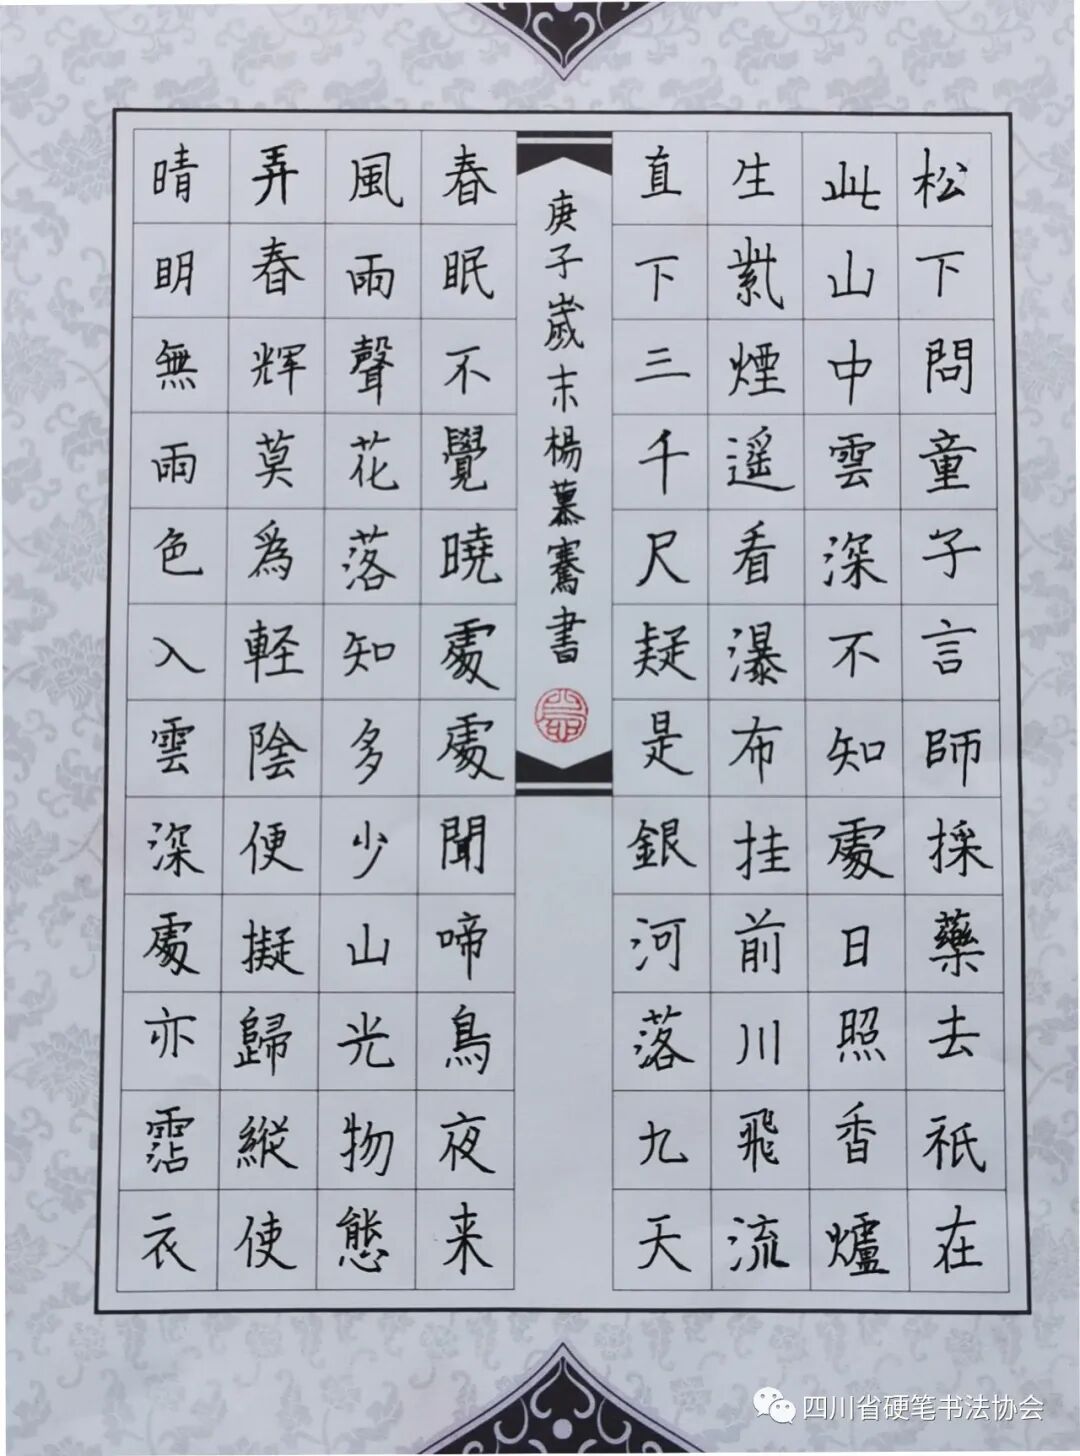 松下問童子言師採藥去祇在
此山中雲深不知處日照香爐
生紫煙遥看瀑布挂前川飛流
直下三千尺疑是銀河落九天
庚子歲末楊慕騫書
春眠不覺曉處處聞啼鳥夜来
風雨聲花落知多少山光物態
弄春輝莫為輕陰便擬歸縱使
晴明無雨色入雲深處亦霑衣
四川省硬笔书法协会